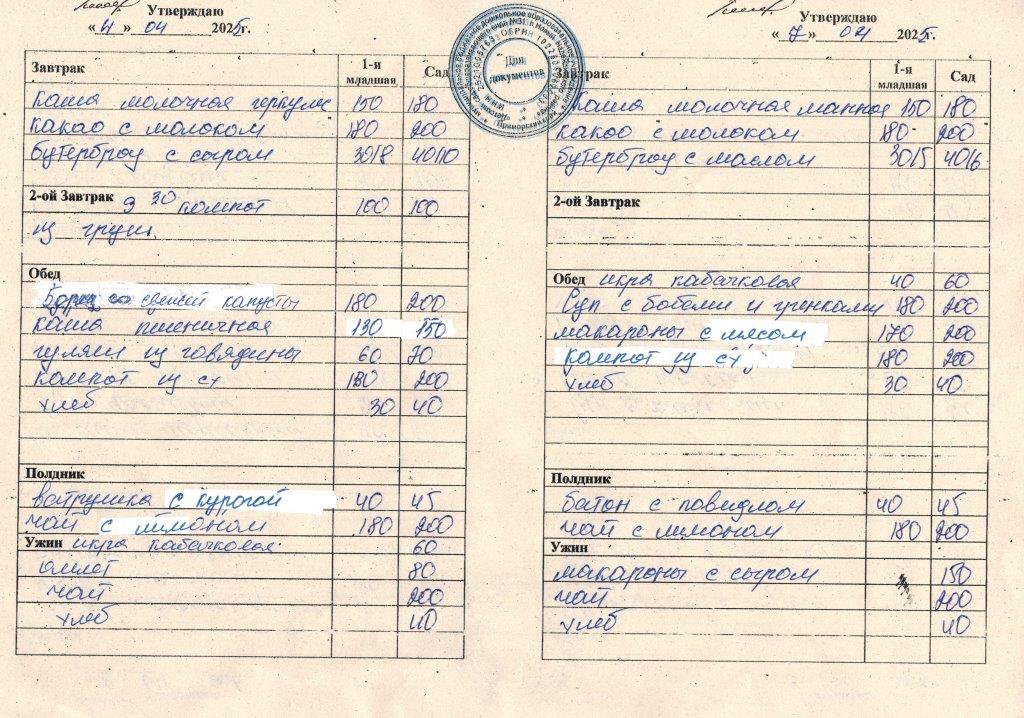 Утверждаю
« 4 » 04 2025г.
Завтрак 1-я младшая Сад
каша молочная геркулес 150 180
какао с молоком 180 200
бутерброд с сыром 30/8 40/10
2-ой Завтрак 9 30 компот 100 100
из груш.
Обед
Борщ со свежей капусты 180 200
каша пшеничная 130 150
гуляш из говядины 60 70
компот из сх 180 200
хлеб 30 40
Полдник
ватрушка с курагой 40 45
чай с лимоном 180 200
Ужин икра кабачковая 60
омлет 80
чай 200
хлеб 40
Утверждаю
« 7 » 04 2025г.
Завтрак 1-я младшая Сад
каша молочная манная 150 180
какао с молоком 180 200
бутерброд с маслом 30/5 40/6
2-ой Завтрак
Обед икра кабачковая 40 60
Суп с бобами и гренками 180 200
макароны с мясом 170 200
компот из сх 180 200
хлеб 30 40
Полдник
батон с повидлом 40 45
чай с лимоном 180 200
Ужин
макароны с сыром 150
чай 200
хлеб 40
Для
документов